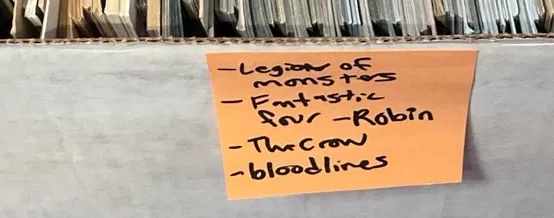 - Legion of
monsters
- Fantastic
four - Robin
- The Crow
- bloodlines